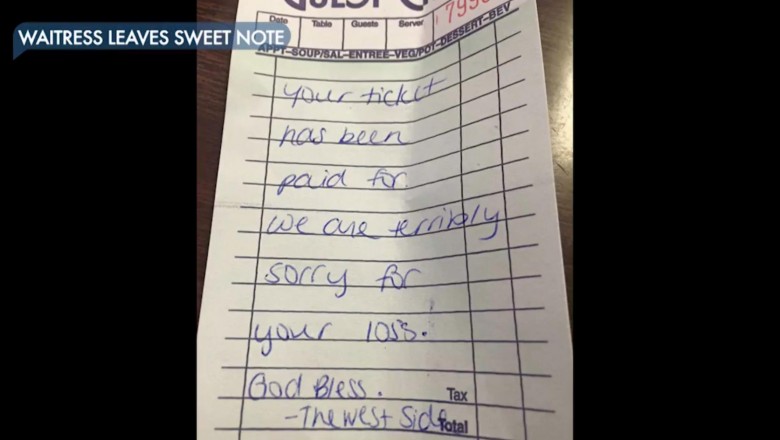 WAITRESS LEAVES SWEET NOTE
Date Table Guests Server
APPT-SOUP/SAL-ENTREE-VEG/POT-DESSERT-BEV
your ticket
has been
paid for.
We are terribly
sorry for
your loss.
God Bless. Tax
-The West Side Total